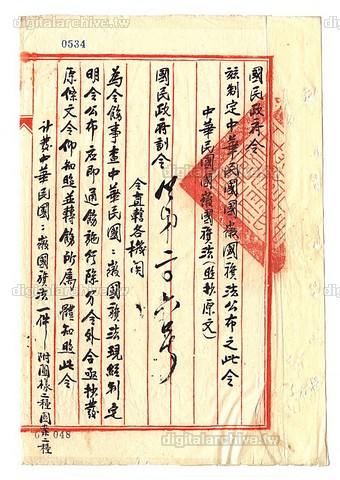 digitalarchive.tw
0534
國民政府令
茲制定中華民國國徽國旗法公布之此令
中華民國國徽國旗法(照抄原文)
國民政府訓令
令直轄各機關
為令飭事查中華民國國徽國旗法現經制定
明令公布應即通飭施行除分令外合亟抄發
原條文令仰知照並轉飭所屬一體知照此令
計發中華民國國徽國旗法一件 附圖樣二種圖案二種
048
digitalarchive.tw